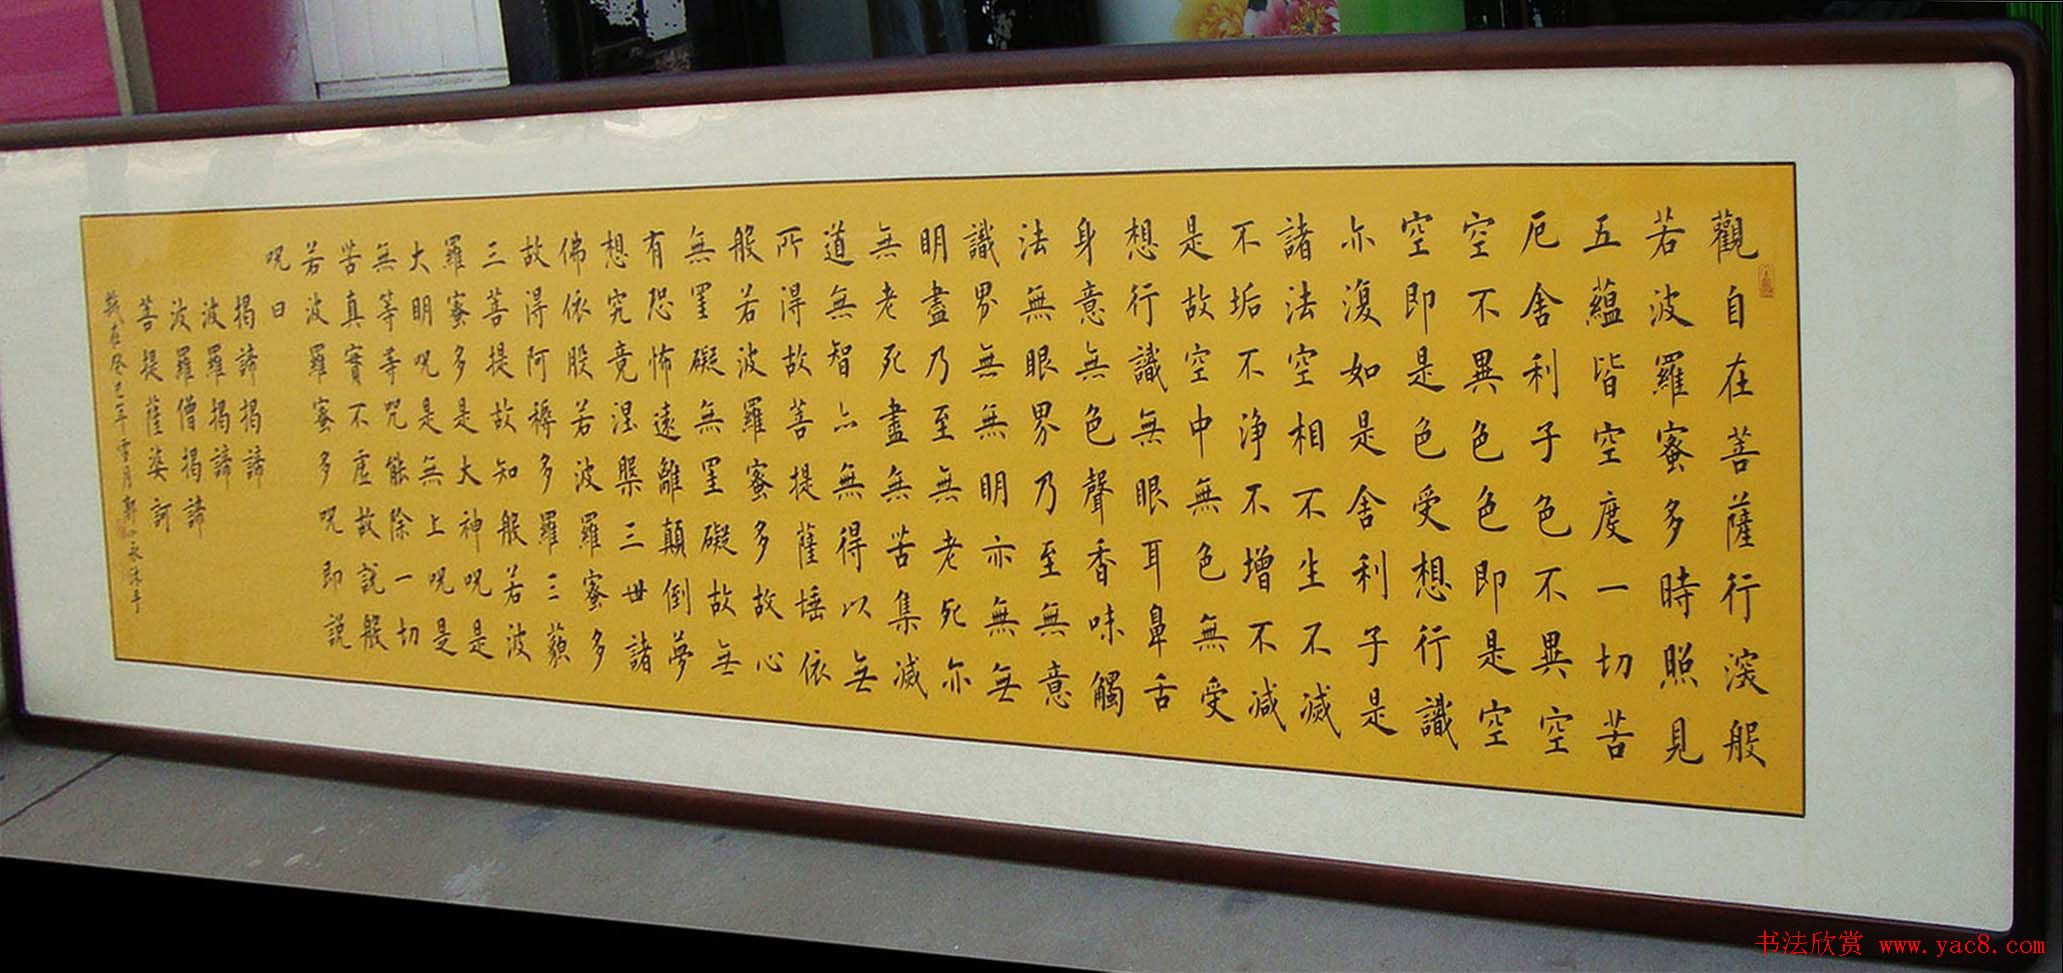 觀自在菩薩行深般
若波羅蜜多時照見
五蘊皆空度一切苦
厄舍利子色不異空
空不異色色即是空
空即是色受想行識
亦復如是舍利子是
諸法空相不生不滅
不垢不淨不增不減
是故空中無色無受
想行識無眼耳鼻舌
身意無色聲香味觸
法無眼界乃至無意
識界無無明亦無無
明盡乃至無老死亦
無老死盡無苦集滅
道無智亦無得以無
所得故菩提薩埵依
般若波羅蜜多故心
無罣礙無罣礙故無
有恐怖遠離顛倒夢
想究竟涅槃三世諸
佛依般若波羅蜜多
故得阿耨多羅三藐
三菩提故知般若波
羅蜜多是大神呪是
大明呪是無上呪是
無等等呪能除一切
苦真實不虛故説般
若波羅蜜多呪即説
呪曰
揭諦揭諦
波羅揭諦
波羅僧揭諦
菩提薩婆訶
歲在癸巳年雪月郭永沐手
书法欣赏 www.yac8.com